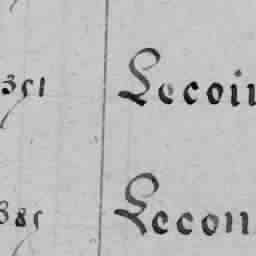 351 Lecoin
385 Lecon